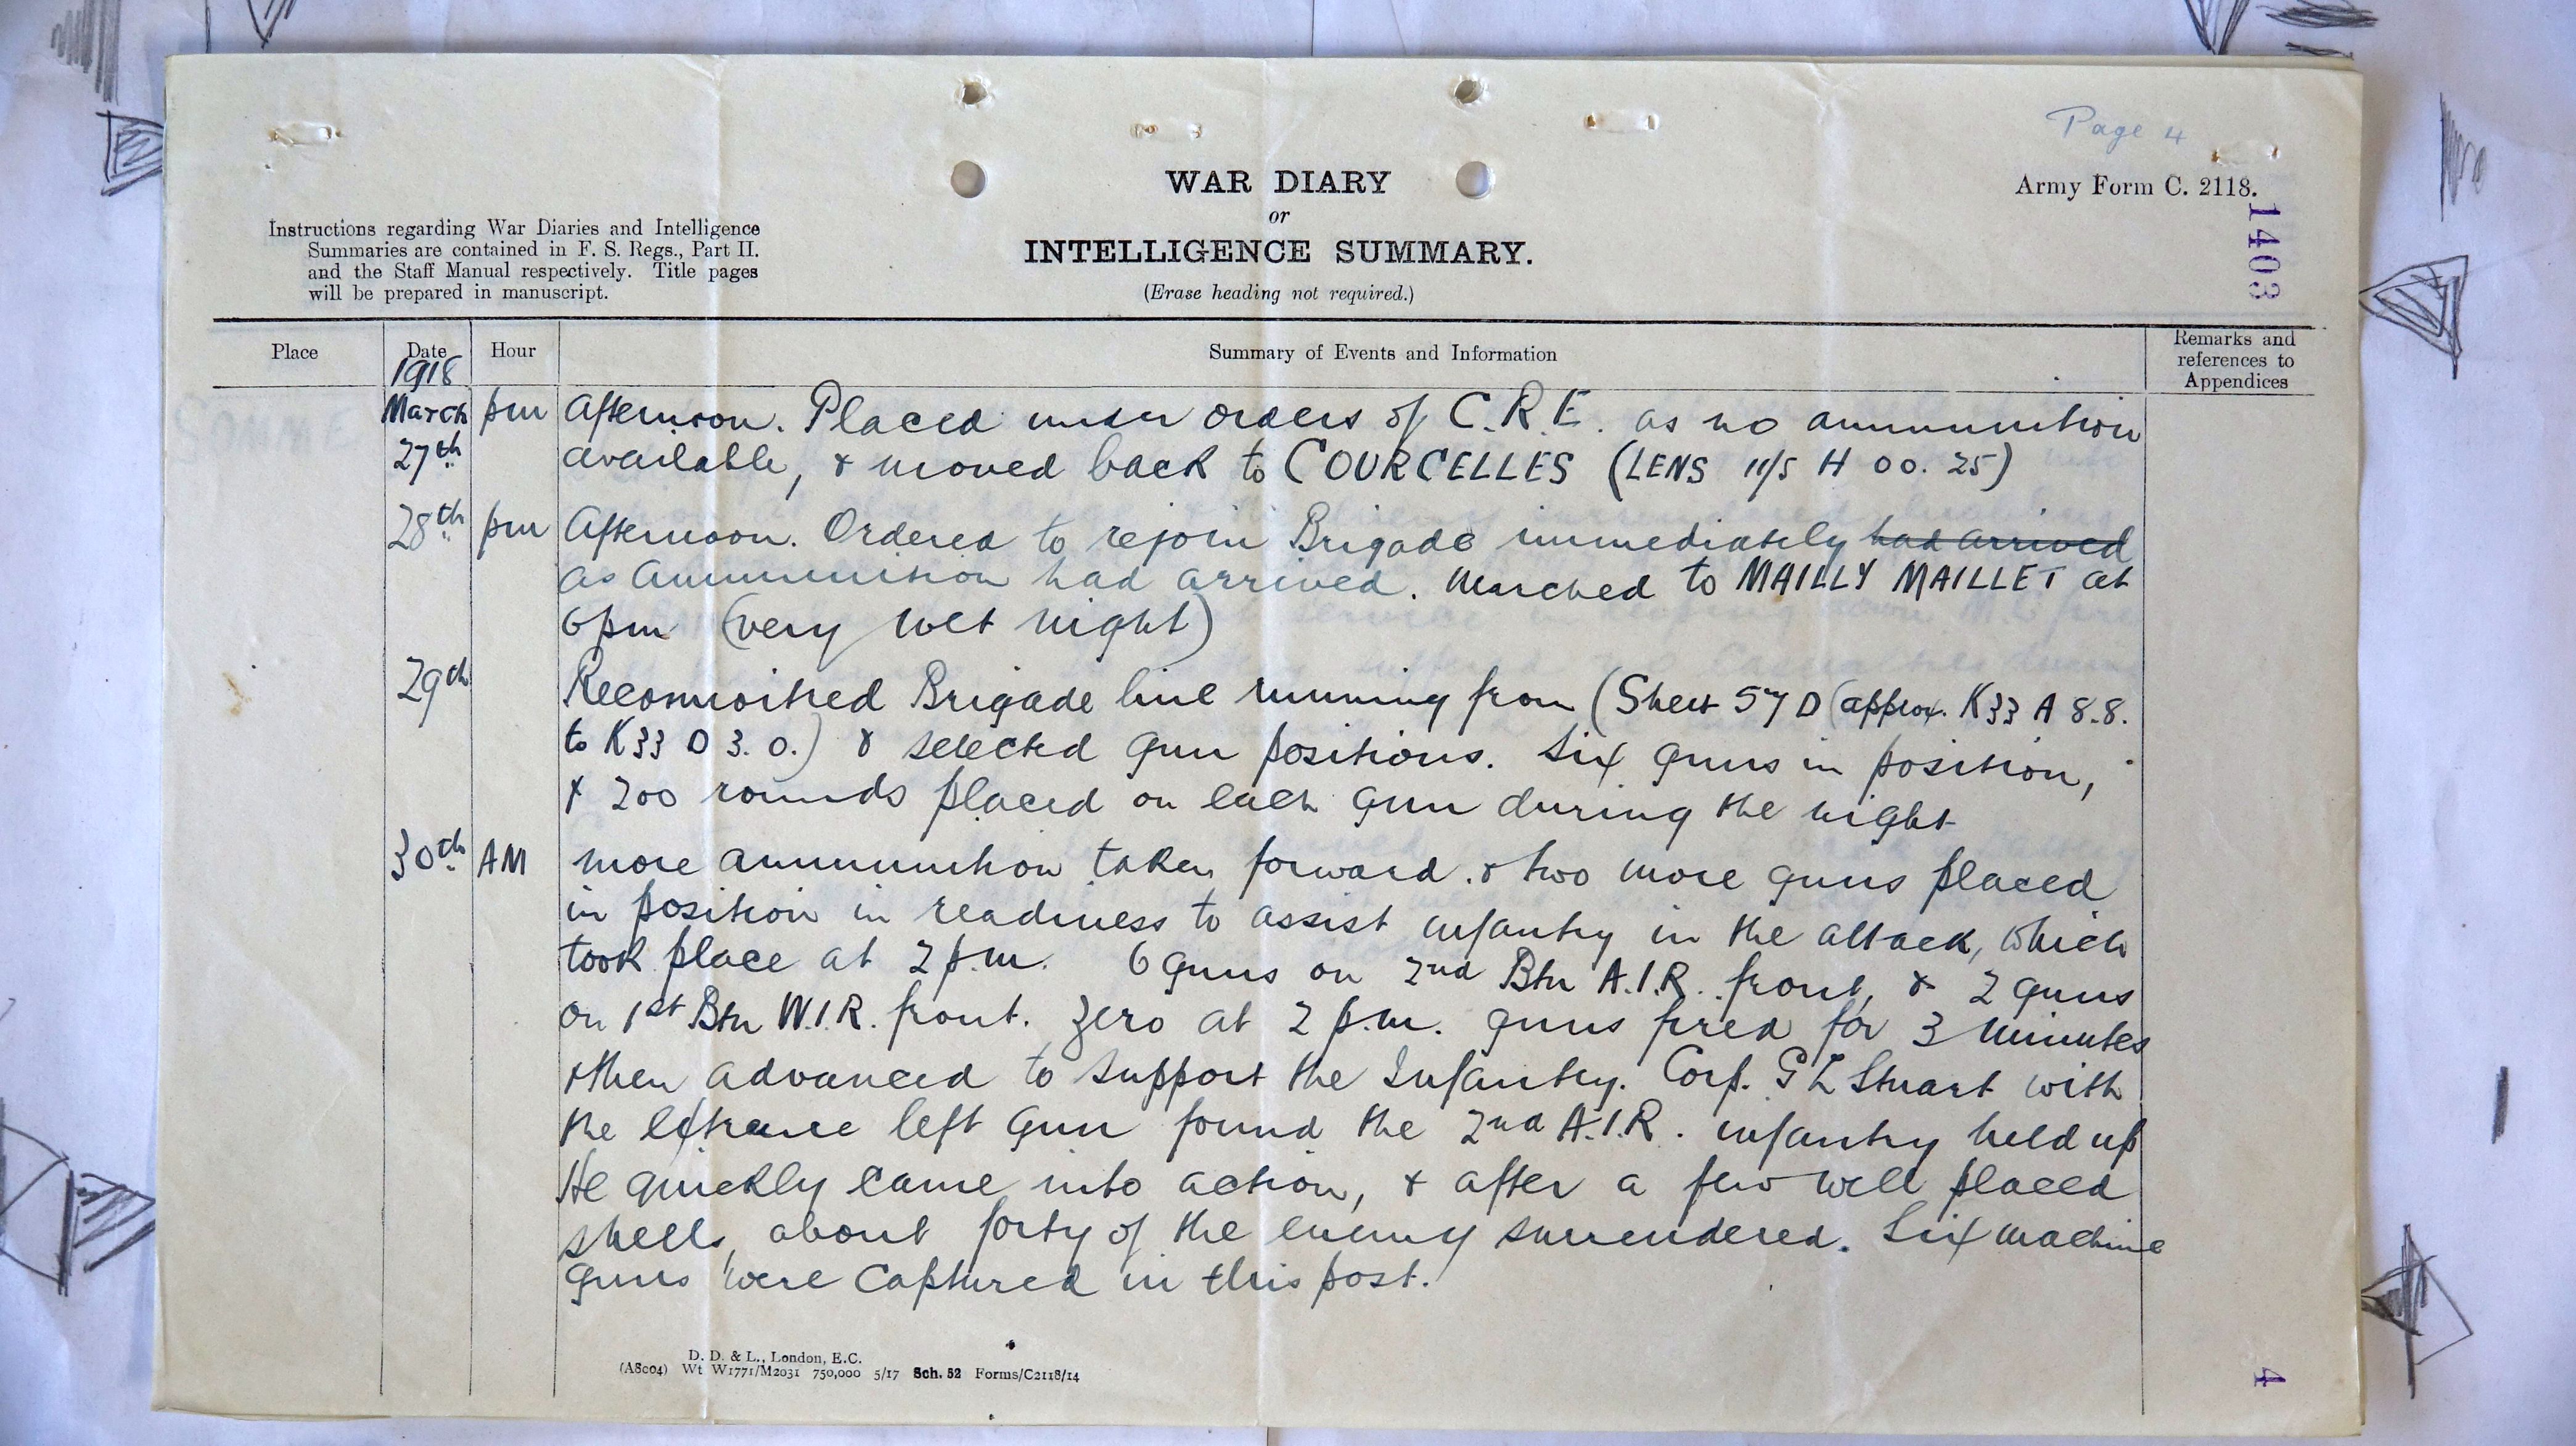 Page 4
Army Form C. 2118.
1403
WAR DIARY
or
INTELLIGENCE SUMMARY.
(Erase heading not required.)
Instructions regarding War Diaries and Intelligence
Summaries are contained in F. S. Regs., Part II.
and the Staff Manual respectively. Title pages
will be prepared in manuscript.
Place Date Hour Summary of Events and Information Remarks and
references to
Appendices
1918
SOMME
March pm Afternoon. Placed under orders of C.R.E. as no ammunition
27th available, & moved back to COURCELLES (LENS 11/5 H 00. 25)
28th pm Afternoon. Ordered to rejoin Brigade immediately had arrived
as ammunition had arrived. Marched to MAILLY MAILLET at
6pm (very wet night)
29th Reconnoitred Brigade line running from (Sheet 57D (approx. K33 A 8.8.
to K33 D 3. 0.) & selected gun positions. Six guns in position,
& 200 rounds placed on each gun during the night
30th AM more ammunition taken forward. & two more guns placed
in position in readiness to assist infantry in the attack, which
took place at 2 p.m. 6 guns on 2nd Btn A.I.R. front, & 2 guns
on 1st Btn W.I.R. front. Zero at 2 p.m. guns fired for 3 minutes
& then advanced to support the Infantry. Corp. G L Stuart with
the extreme left gun found the 2nd A.I.R. infantry held up
He quickly came into action, & after a few well placed
shells, about forty of the enemy surrendered. Six machine
guns were captured in this post.
D. D. & L., London, E.C.
(A8004) Wt W1771/M2031 750,000 5/17 Sch. 52 Forms/C2118/14
4